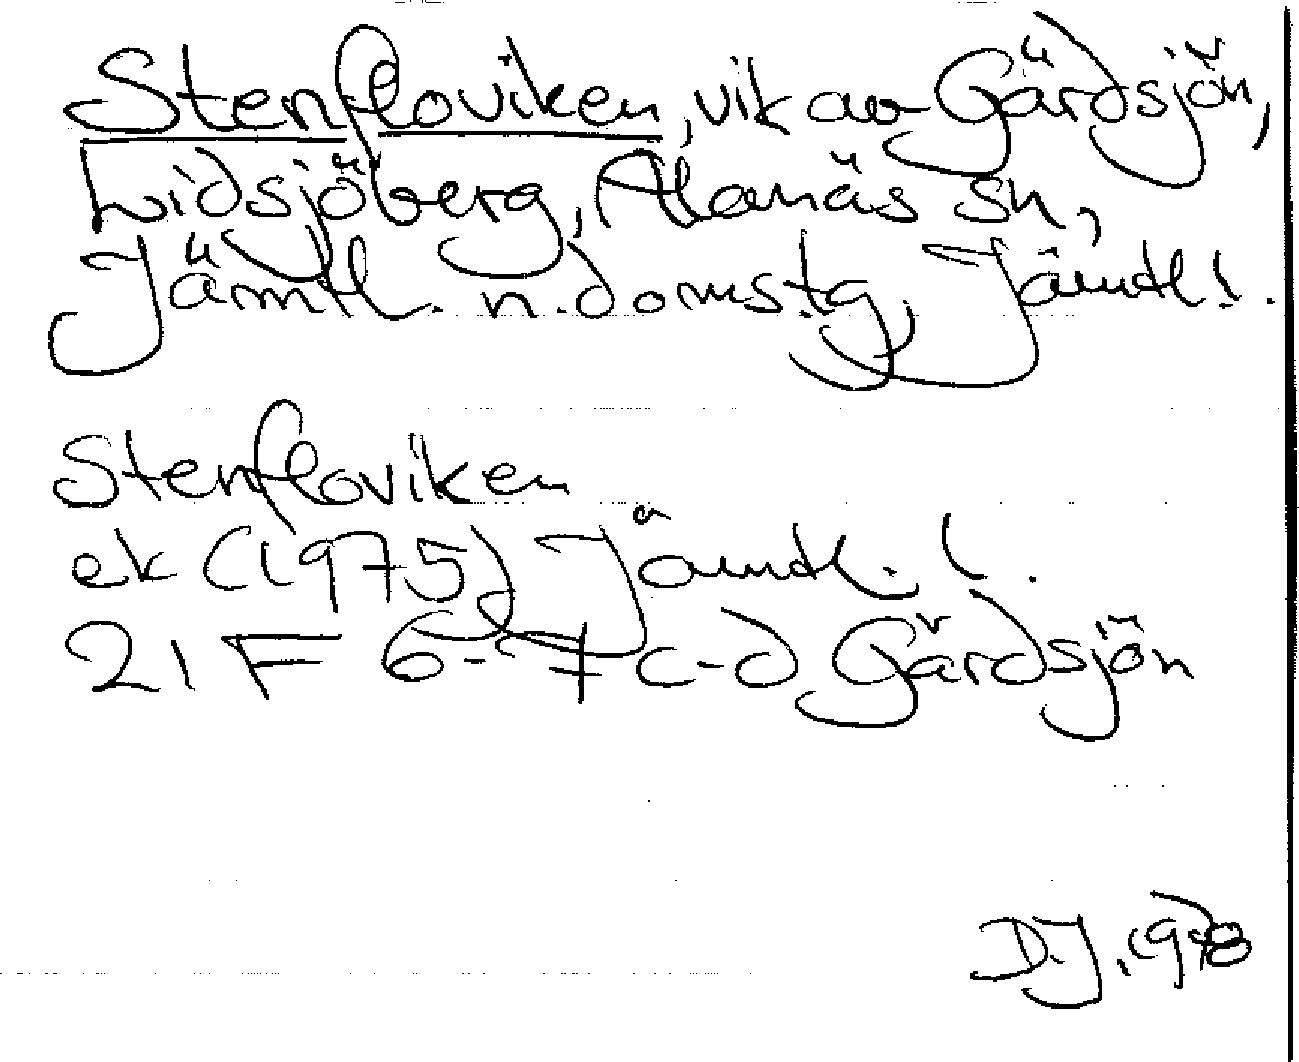 Stenfloviken, vik av Gärdsjön,
Lidsjöberg, Alanäs sn,
Jämtl. n. domstg, Jämtl.
Stenfloviken
ek (1975) Jämtl. l.
21 F 6-7 c-d Gärdsjön
D.J. 1978